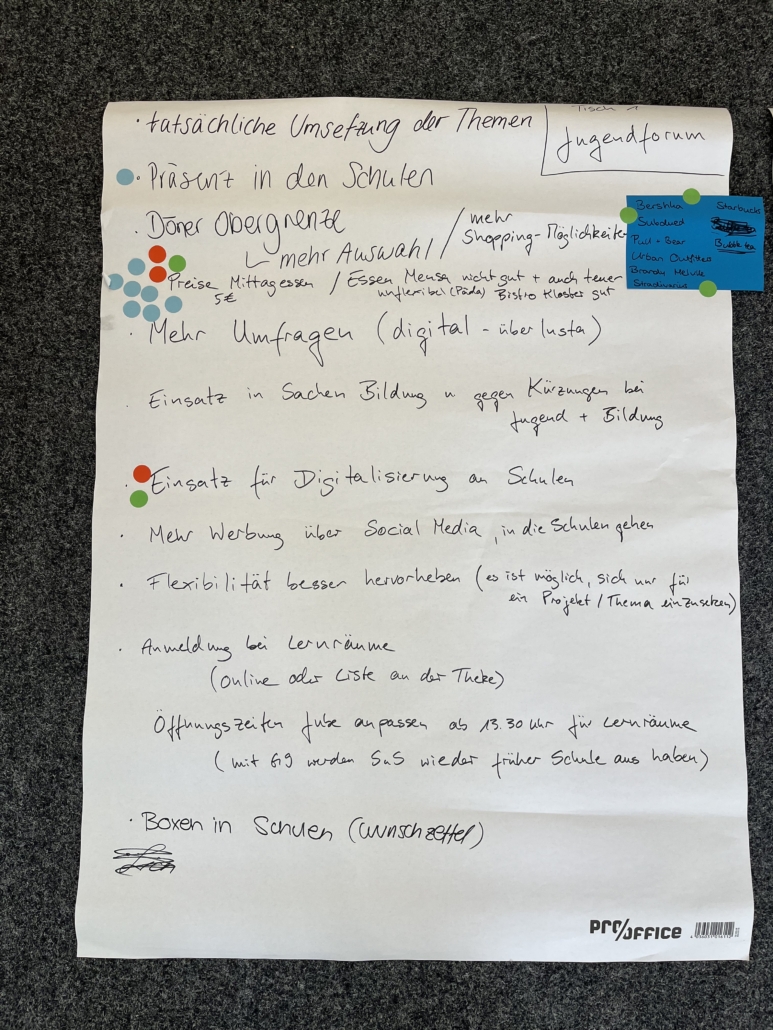 Tisch 1
Jugendforum
· tatsächliche Umsetzung der Themen
· Präsenz in den Schulen
· Döner Obergrenze
mehr Auswahl / mehr
Shopping-Möglichkeiten
Bershka
Subdued
Pull + Bear
Urban Outfitters
Brandy Melville
Stradivarius
Starbucks
Bubble tea
Preise Mittagessen / Essen Mensa nicht gut + auch teuer
5€ unflexibel (Päda) Bistro Kloster gut
· Mehr Umfragen (digital - über Insta)
· Einsatz in Sachen Bildung u gegen Kürzungen bei
Jugend + Bildung
· Einsatz für Digitalisierung an Schulen
· Mehr Werbung über Social Media, in die Schulen gehen
· Flexibilität besser hervorheben (es ist möglich, sich nur für
ein Projekt / Thema einzusetzen)
· Anmeldung bei Lernräume
(online oder Liste an der Theke)
Öffnungszeiten Jube anpassen ab 13.30 Uhr für Lernräume
(mit G9 werden SuS wieder früher Schule aus haben)
· Boxen in Schulen (Wunschzettel)
PRO/OFFICE